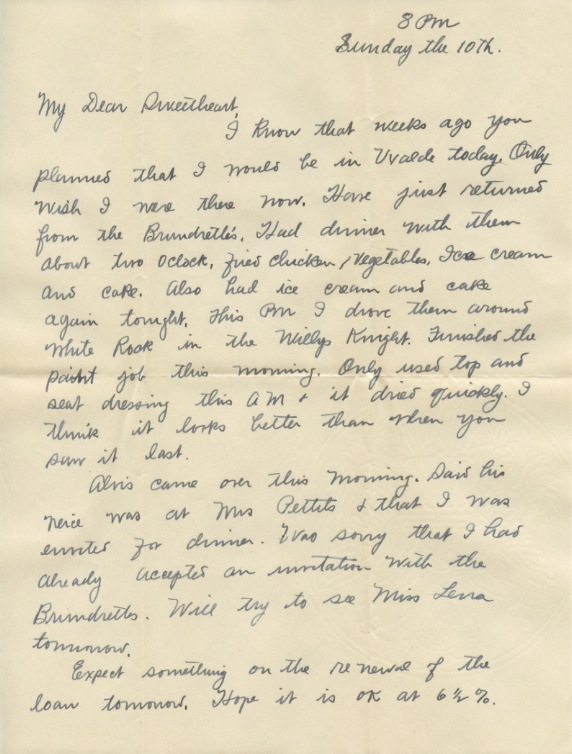 8 Pm
Sunday the 10th.
My Dear Sweetheart,
I know that weeks ago you
planned that I would be in Uvalde today. Only
wish I were there now. Have just returned
from the Brundrettes. Had dinner with them
about two Oclock, fried chicken, vegetables, Ice cream
and cake. Also had ice cream and cake
again tonight. This Pm I drove them around
White Rock in the Willys Knight. Finished the
paint job this morning. Only used top and
seat dressing this AM & it dried quickly. I
think it looks better than when you
saw it last.
Alvis came over this morning. Said his
neice was at Mrs Pettits & that I was
envited for dinner. Was sorry that I had
already accepted an invitation with the
Brundretts. Will try to see Miss Lena
tomorrow.
Expect something on the renewal of the
loan tomorrow. Hope it is OK at 6 1/2 %.